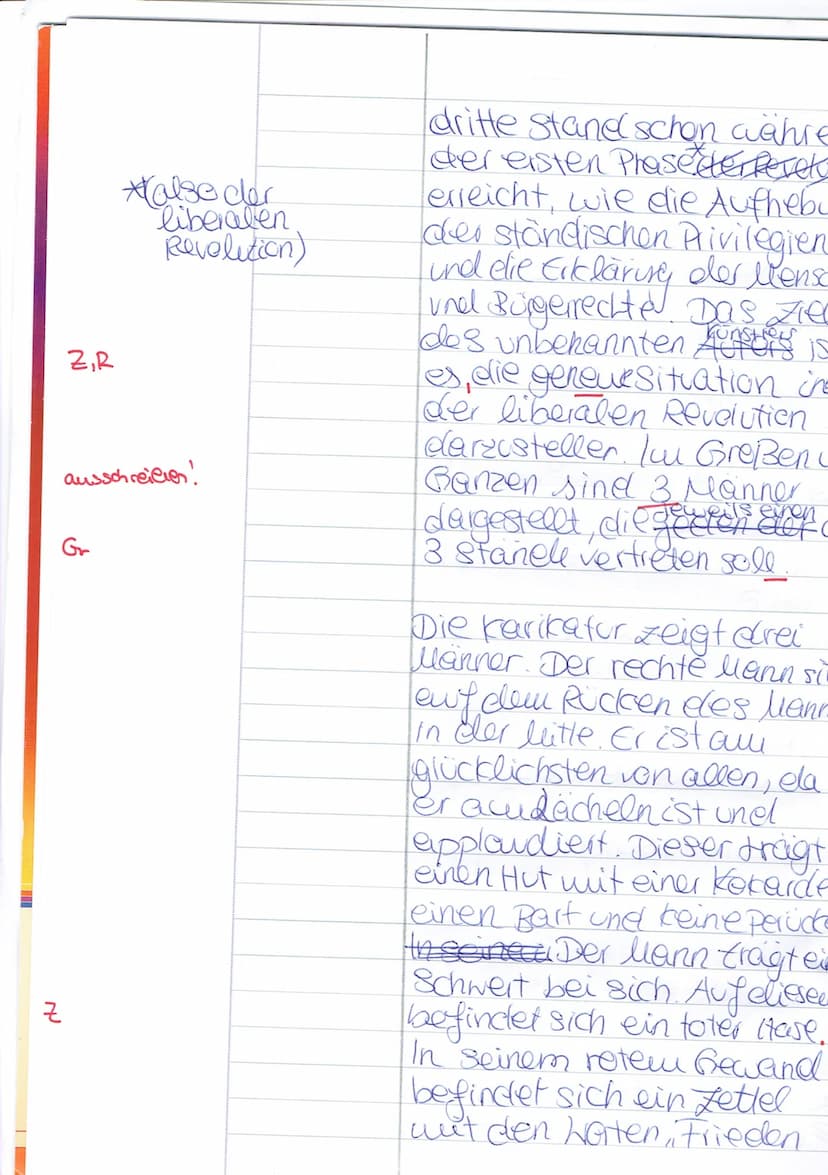 dritte Stand schon währe
der ersten Phase * der Revolu
*(also der
liberalen
Revolution)
erreicht, wie die Aufhebu
der ständischen Privilegien
und die Erklärung der Mensc
und Bürgerrechte. Das Ziel
des unbekannten Künstlers Autors is
Z,R
es, die geneue Situation in
der liberalen Revolution
darzustellen. Im Großen u
ausschreiben!
Ganzen sind 3 Männer
dargestellt, die jeweils einen jeden der
Gr
3 Stände vertreten soll.
Die Karikatur zeigt drei
Männer. Der rechte Mann si
auf dem Rücken des Mann
in der Mitte. Er ist am
glücklichsten von allen, da
er am Lächeln ist und
applaudiert. Dieser trägt
einen Hut mit einer Kokarde
einen Bart und keine Perück
In seinem Der Mann trägt ei
Schwert bei sich. Auf diesem
Z
befindet sich ein toter Hase.
In seinem rotem Gewand
befindet sich ein Zettel
mit den Worten „Frieden